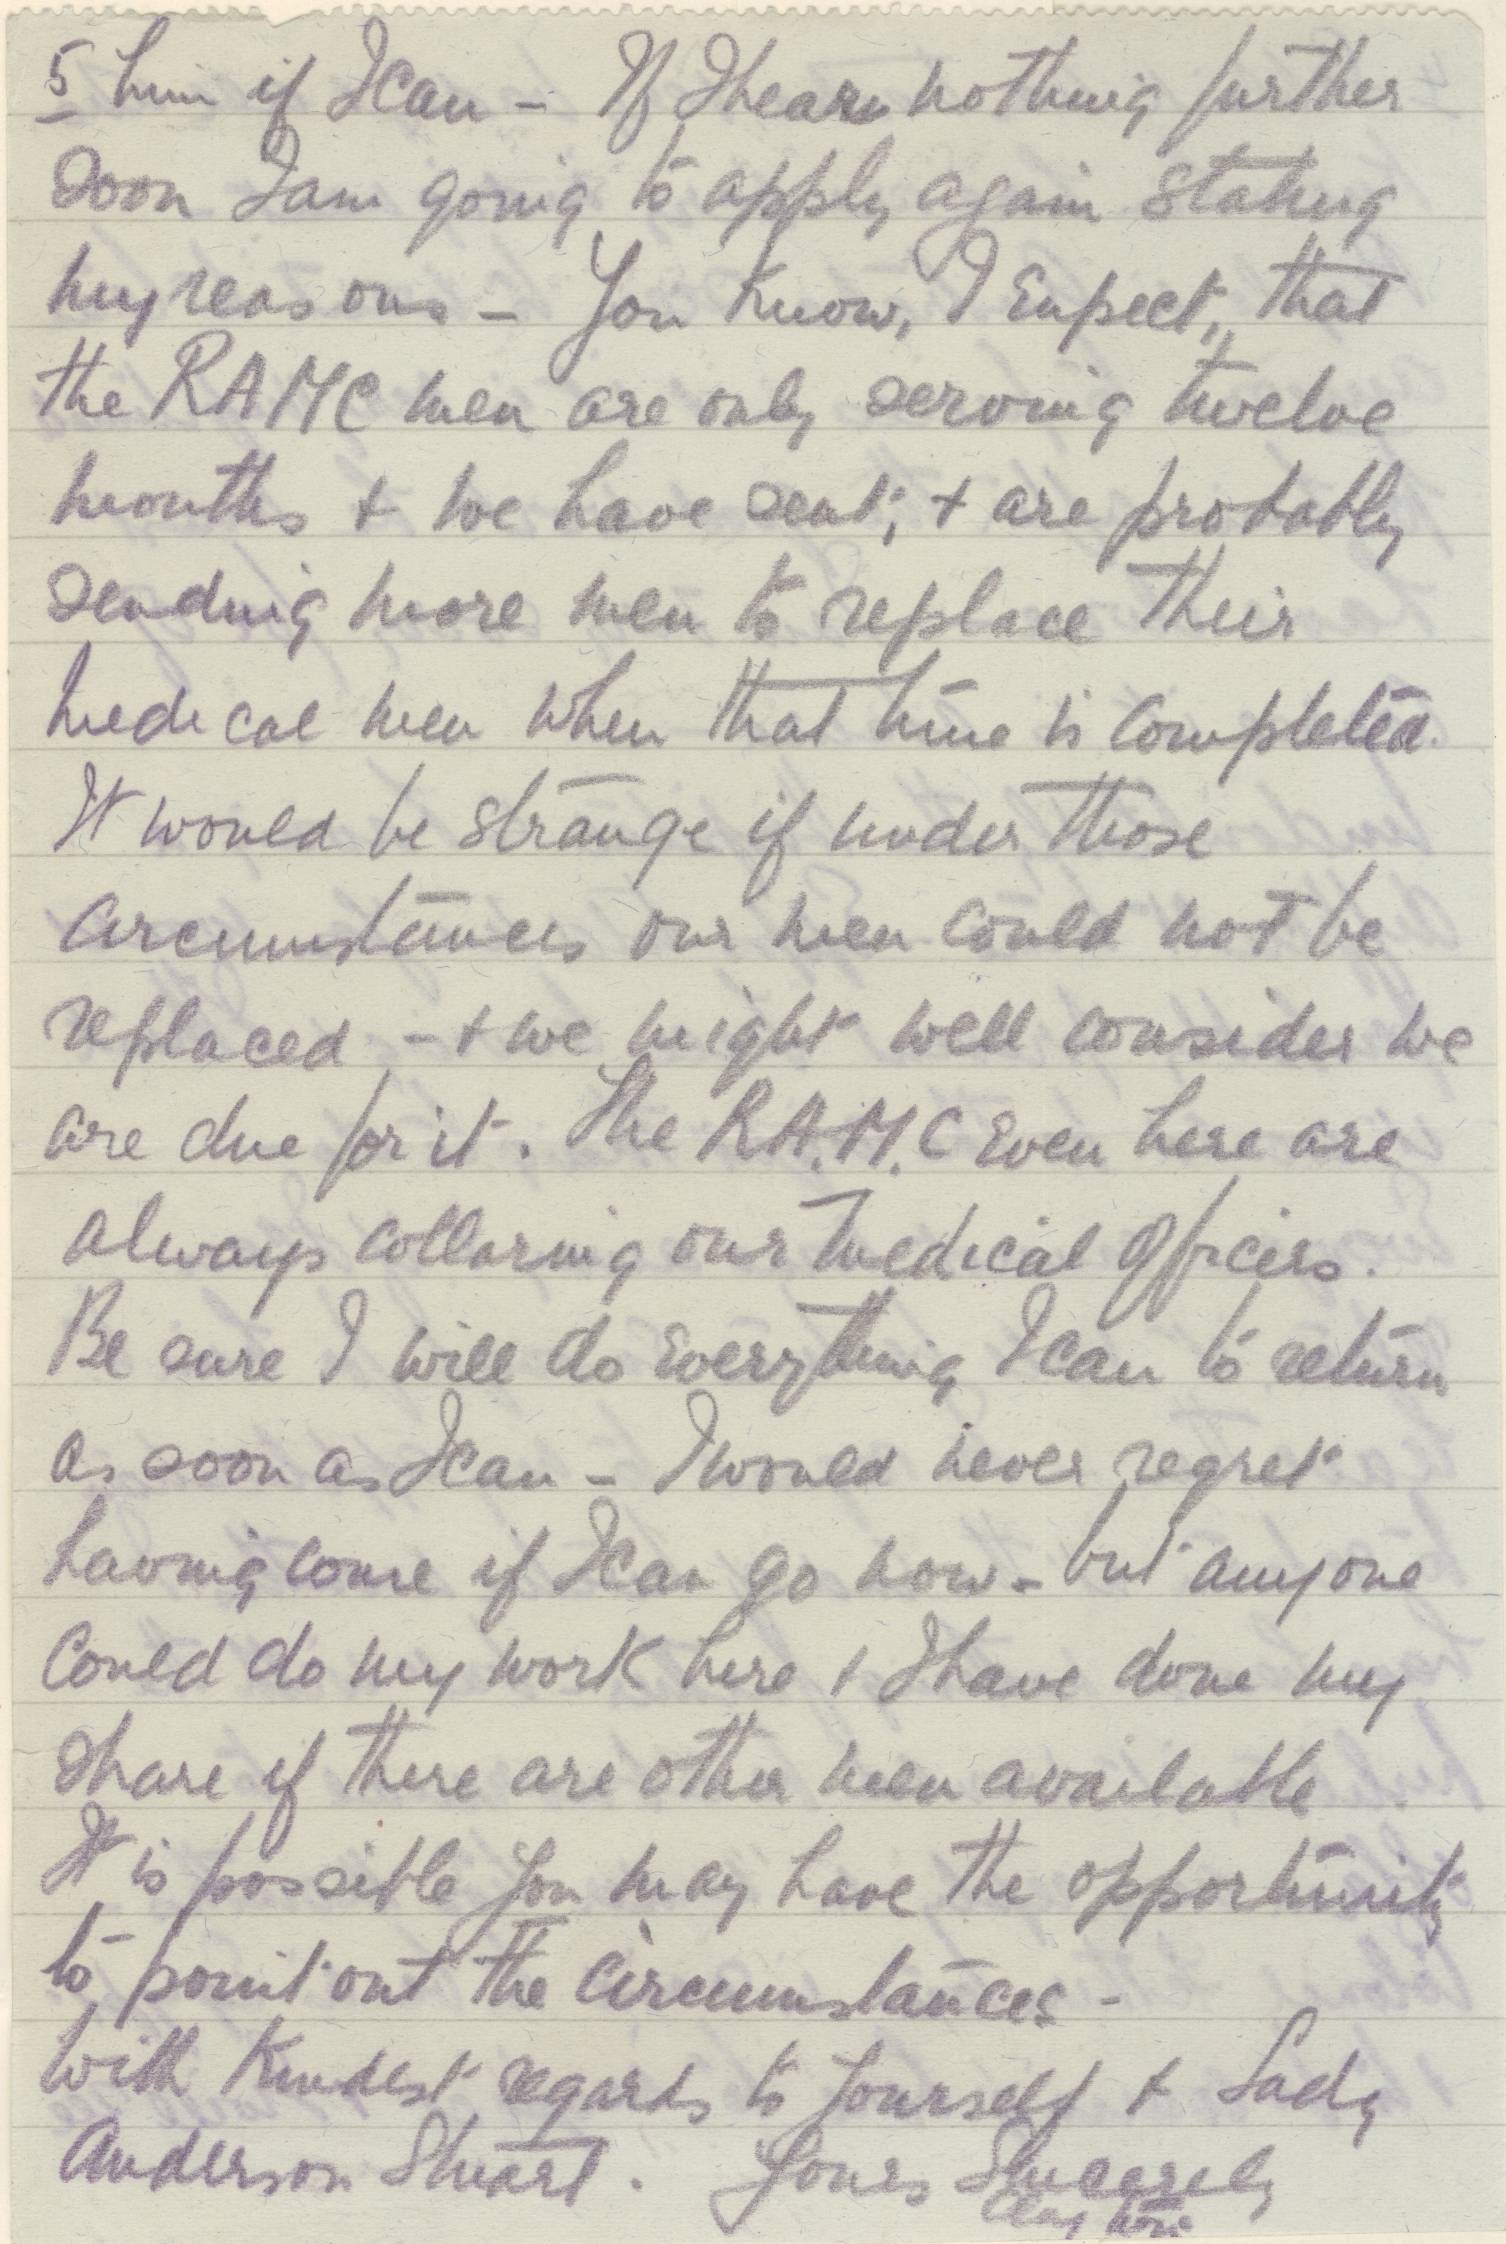 5 him if I can - If I hear nothing further
soon I am going to apply again stating
my reasons - You know, I expect, that
the RAMC men are only serving twelve
months + we have sent, + are probably
sending more men to replace their
medical men when that time is completed.
It would be strange if under those
circumstances our men could not be
replaced - + we might well consider we
are due for it. The R.A.M.C even here are
always collaring our medical officers.
Be sure I will do everything I can to return
as soon as I can - I would never regret
having come if I can go now - but anyone
could do my work here + I have done my
share if there are other men available.
It is possible you may have the opportunity
to point out the circumstances -
With kindest regards to yourself + Lady
Anderson Stuart. Yours Sincerely